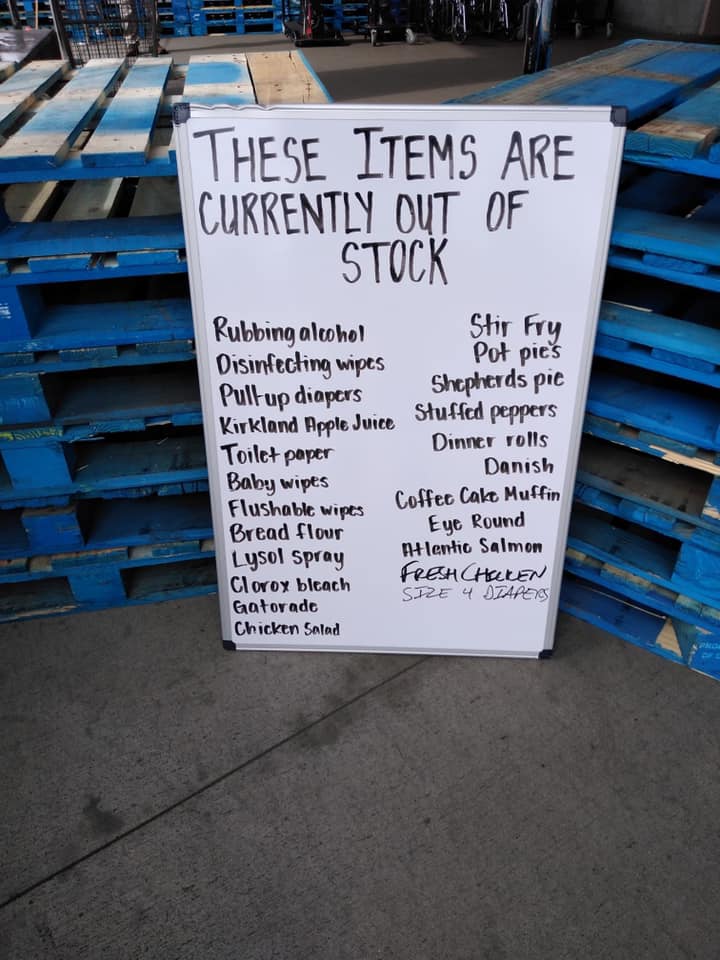 THESE ITEMS ARE
CURRENTLY OUT OF
STOCK
Rubbing alcohol
Disinfecting wipes
Pull-up diapers
Kirkland Apple Juice
Toilet paper
Baby wipes
Flushable wipes
Bread flour
Lysol spray
Clorox bleach
Gatorade
Chicken Salad
Stir Fry
Pot pies
Shepherds pie
Stuffed peppers
Dinner rolls
Danish
Coffee Cake Muffin
Eye Round
Atlantic Salmon
FRESH CHICKEN
SIZE 4 DIAPERS